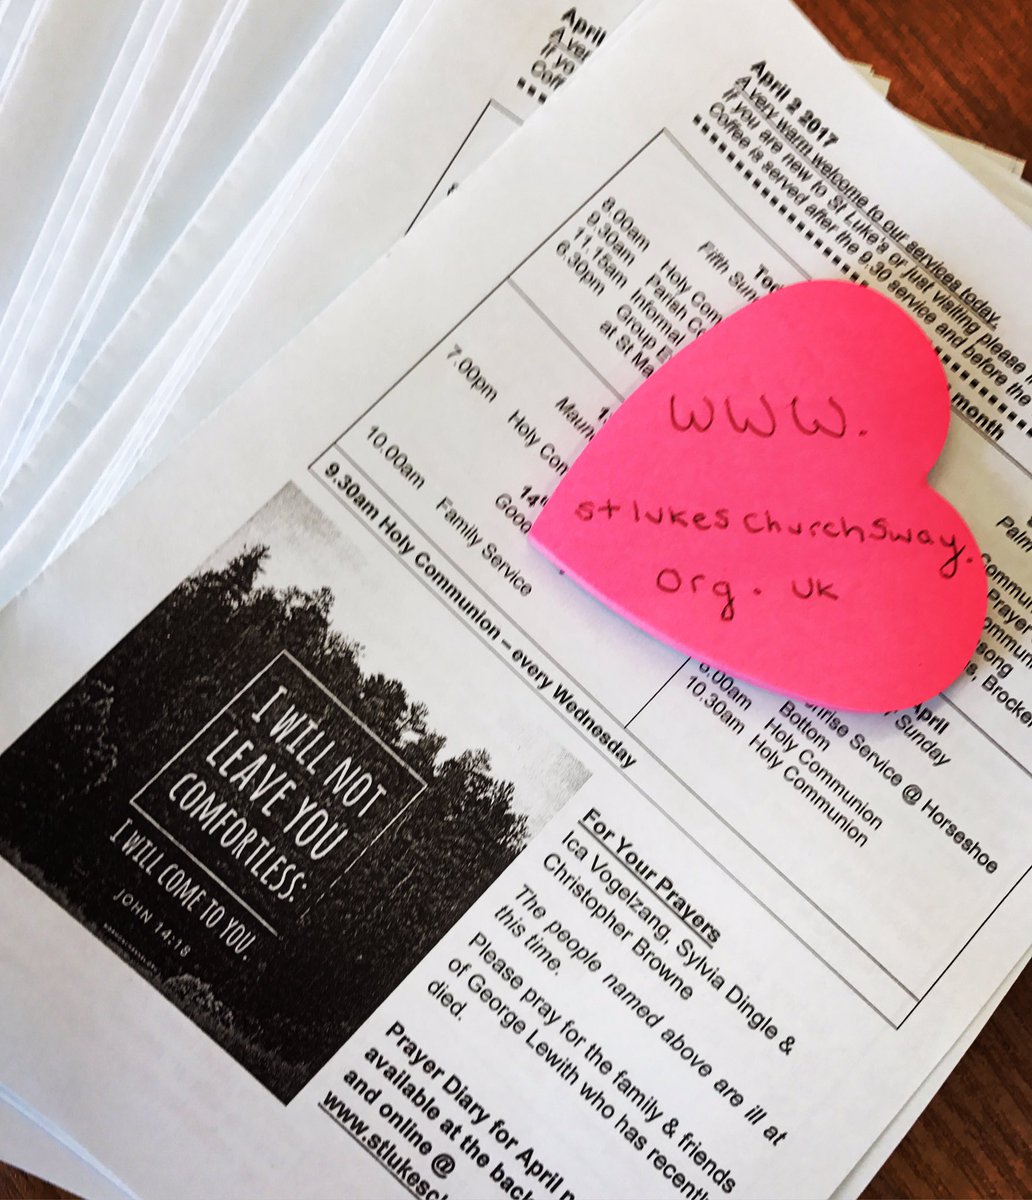 April
A ver
If yo
Coff
April 2 2017
A very warm welcome to our services today.
If you are new to St Luke's or just visiting please
Coffee is served after the 9.30 service and before the
month
8.00am Holy Com
9.30am Parish Co
11.15am Informal
6.30pm Group E
at St Ma
Fifth Sun
7.00pm Holy Com
Maun
14th
Good
10.00am Family Service
9.30am Holy Communion – every Wednesday
www.
stlukeschurchsway.
org.uk
Palm
Commu
Prayer
ommun
song
s, Brocke
April
Sunday
nrise Service @ Horseshoe
Bottom
Holy Communion
10.30am Holy Communion
I WILL NOT
LEAVE YOU
COMFORTLESS:
I WILL COME TO YOU.
JOHN 14:18
For Your Prayers
Ica Vogelzang, Sylvia Dingle &
Christopher Browne
The people named above are ill at
this time.
Please pray for the family & friends
of George Lewith who has recently
died.
Prayer Diary for April
available at the back
and online @
www.stlukesc